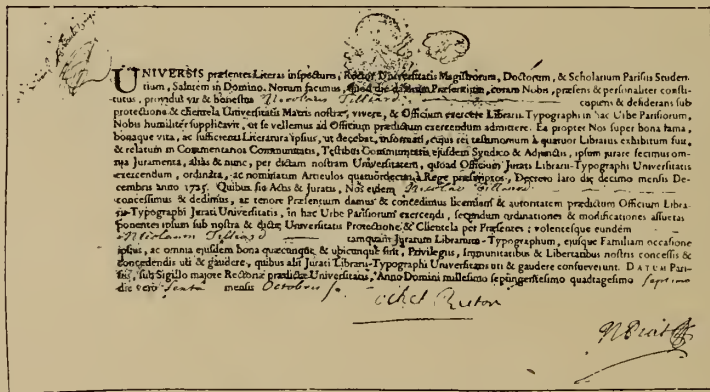 UNIVERSIS præsentes Literas inspecturis, Rector Universitatis Magistrorum, Doctorum, & Scholarium Parisiis Studen-
tium, Salutem in Domino. Notum facimus, quod die datarum Præsentium, coram Nobis, præsens & personaliter consti-
tutus, providus vir & honestus Nicolaus Tilliard cupiens & desiderans sub
protectione & clientela Universitatis Matris nostræ, vivere, & Officium exercere Librarii-Typographi in hac Urbe Parisiorum,
Nobis humiliter supplicavit, ut se vellemus ad Officium prædictum exercendum admittere. Ea propter Nos super bona fama,
bonaque vita, ac sufficienti Literatura ipsius, ut decebat, informati, cujus rei testimonium à quatuor Librariis exhibitum fuit,
& relatum in Commentarios Communitatis, Testibus Communitatis ejusdem Syndico & Adjunctis, ipsum jurare fecimus om-
nia Juramenta, aliàs & nunc, per dictam nostram Universitatem, quoad Officium Jurati Librarii-Typographi Universitatis
exercendum, ordinata, ac nominatim Articulos quatuordecim à Rege præscriptos, Decreto lato die decimo mensis De-
cembris anno 1725. Quibus sic Actis & Juratis, Nos eidem Nicolao Tilliard
concessimus & dedimus, ac tenore Præsentium damus & concedimus licentiam & autoritatem prædictum Officium Libra-
rii-Typographi Jurati Universitatis, in hac Urbe Parisiorum exercendi, secundum ordinationes & modificationes assuetas
ponentes ipsum sub nostra & dictæ Universitatis Protectione & Clientela per Præsentes; volentesque eundem
Nicolaum Tilliard tamquam Juratum Librarium-Typographum, ejusque Familiam occasione
ipsius, ac omnia ejusdem bona quæcunque & ubicunque sint, Privilegiis, Immunitatibus & Libertatibus nostris concessis &
concedendis uti & gaudere, quibus alii Jurati Librarii-Typographi Universitatis uti & gaudere consueverunt. DATUM Pari-
siis, sub Sigillo majore Rectoriæ prædictæ Universitatis, Anno Domini millesimo septingentesimo quadragesimo septimo
die vero sexta mensis Octobris
Rector